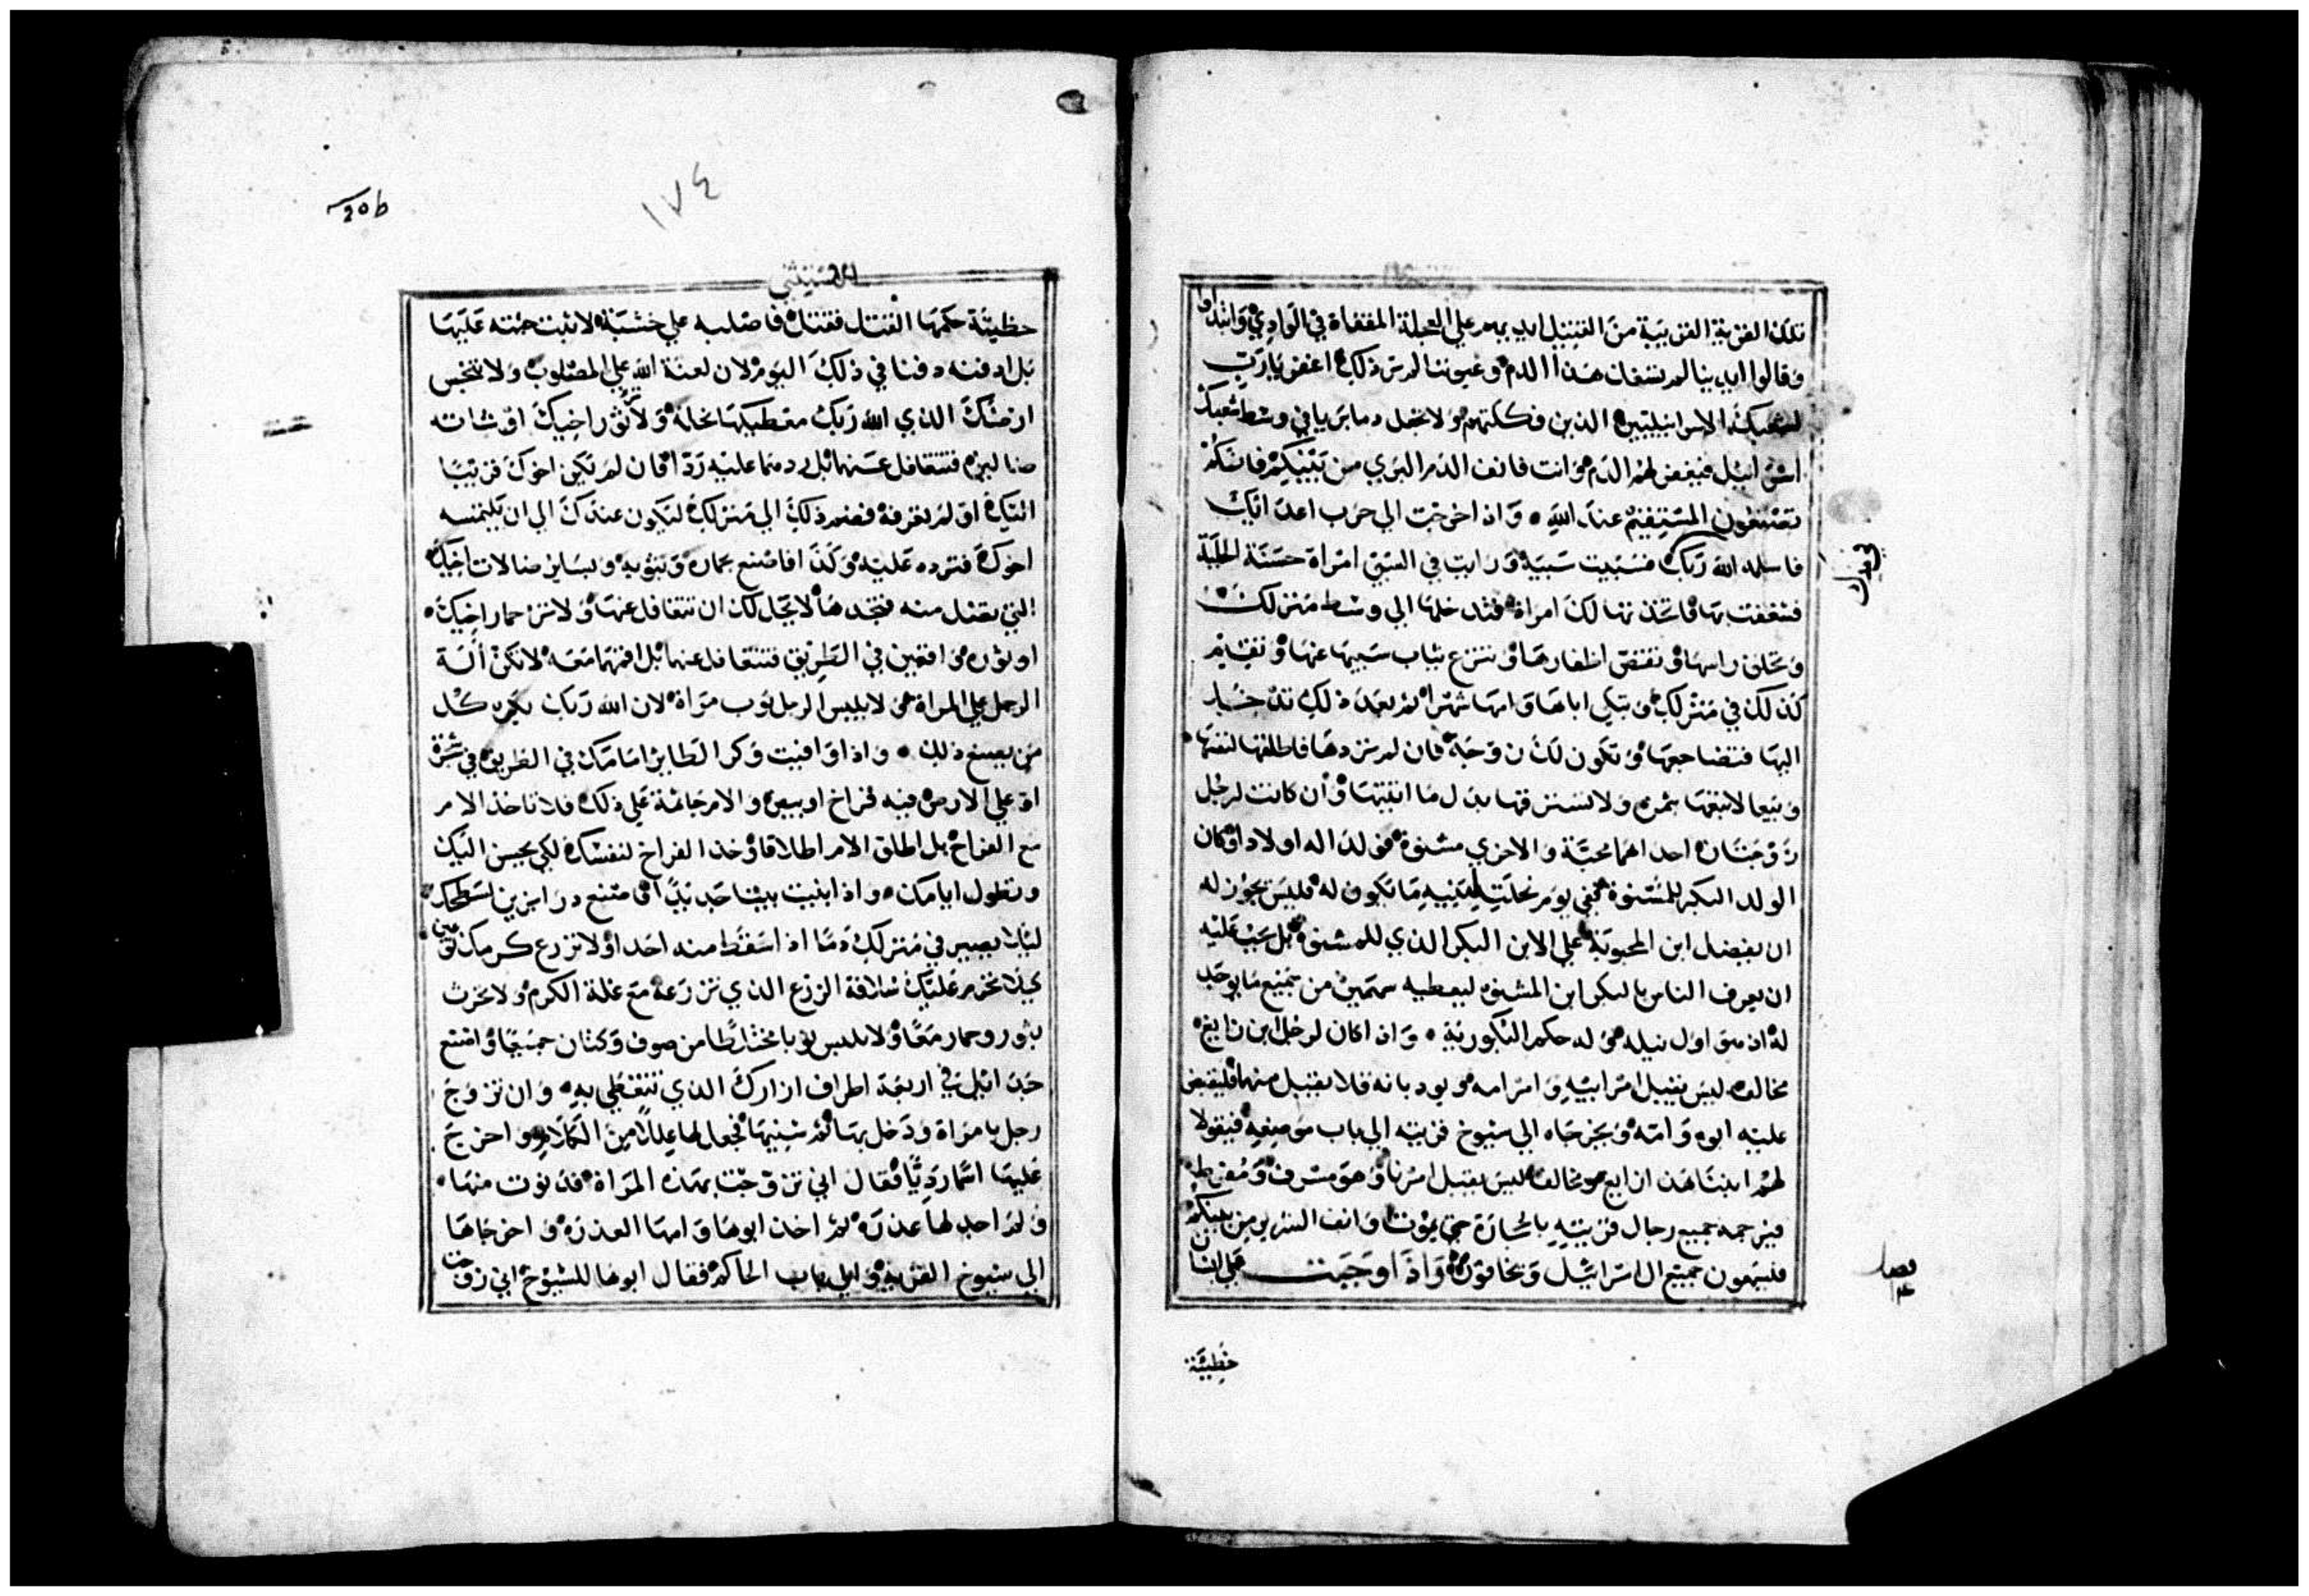 تلك القرية القريبة من القتيل ايديهم علي العجلة المقفاة في الوادي وابتداوا
وقالوا ايدينا لم تسفك هذا الدم وعيوننا لم تر ذلك اغفر يا رب
لشعبك الاسرائيليين الذين فككتهم ولا تجعل دما بريا في وسط شعبك
اسرائيل فيغفر لهم الدم وانت فانف الدم البري من بينكم فانكم
تصنعون المستقيم عند الله وَاذا خرجت الي حرب اعدائك
فاسلمه الله ربك فسبيت سبية ورايت في السبي امراة حسنة الحلية
فشغفت بها فاتخذتها لك امراة فتدخلها الي وسط منزلك
وتحلق راسها وتقص اظفارها وتنزع ثياب سبيها عنها وتقيم
كذلك في منزلك وتبكي اباها وامها شهرا ثم بعد ذلك تدخل
اليها فتضاجعها وتكون لك زوجة فان لم تردها فاطلقها لنفسها
وبيعا لا تبعها بثمن ولا تسترقها بدل ما اتيتها وان كانت لرجل
زوجتان احداهما محبة والاخري مشنوة فولدا له اولادا وكان
الولد البكر للمشنوة ففي يوم نحلته لبنيه ما تكون له فليس يجوز له
ان يفضل ابن المحبوبة علي الابن البكر الذي للمشنوة بل يجب عليه
ان يعرف الناس بالبكر ابن المشنوة ليعطيه سهمين من جميع ما يوجد
له اذ هو اول نيله وله حكم البكورية وَاذا كان لرجل ابن زايغ
مخالف ليس يقبل امر ابيه وامر امه ويودبانه فلا يقبل منهما فليقبض
عليه ابوه وامه ويخرجاه الي شيوخ قريته الي باب موضعه فيقولا
لهم ابننا هذا زايغ ومخالف ليس يقبل امرنا وهو مسرف ومفرط
فيرجمه جميع رجال قريته بالحجارة حتي يموت وانف الشرير من بينكم
فليسمعون جميع ال اسرائيل ويخافون وَاذا وجبت علي انسان
خطيئة
فصل
خطيئة حكمها القتل فقتل فاصلبه علي خشبة لا تبت جثته عليها
بل ادفنه دفنا في ذلك اليوم لان لعنة الله علي المصلوب ولا تنجس
ارضك الذي الله ربك معطيكها نحلة ولا تر ثور اخيك او شاته
ضالين فتتغافل عنهما بل ردهما عليه ردا فان لم يكن اخوك قريبا
اليك او لم تعرفه فضم ذلك الي منزلك ليكون عندك الي ان يلتمسه
اخوك فترده عليه وكذا فاصنع بحماره وبثوبه وبساير ضالات اخيك
التي تضل منه فتجدها لا يحل لك ان تتغافل عنها ولا تر حمار اخيك
او ثوره واقعين في الطريق فتتغافل عنهما بل اقمهما معه لا تكن الة
الرجل علي المراة ولا يلبس الرجل ثوب مراة لان الله ربك يكره كل
من يصنع ذلك واذا وافيت وكر الطاير امامك في الطريق في شجرة
او علي الارض فيه فراخ او بيض والام جاثمة علي ذلك فلا تاخذ الام
مع الفراخ بل اطلق الام اطلاقا وخذ الفراخ لنفسك لكي يحسن اليك
وتطول ايامك واذا بنيت بيتا جديدا فاصنع درابزين لسطحك
ليلا يصير في منزلك دما اذا سقط منه احد ولا تزرع كرمك نوعين
كيلا تحرم عليك سلافة الزرع الذي تزرعه مع غلة الكرم ولا تحرث
بثور وحمار معا ولا تلبس ثوبا مختلطا من صوف وكتان جميعا واصنع
جدائل في اربعة اطراف ازارك الذي تتغطي به وان تزوج
رجل بامراة ودخل بها ثم شنيها فجعل لها عللا من الكلام واخرج
عليها اسما رديا فقال اني تزوجت بهذه المراة فدنوت منها
ولم اجد لها عذرة ثم اخذ ابوها وامها العذرة واخرجاها
الي شيوخ القرية والي باب الحاكم فقال ابوها للشيوخ اني زوجت
١٧٤
20b